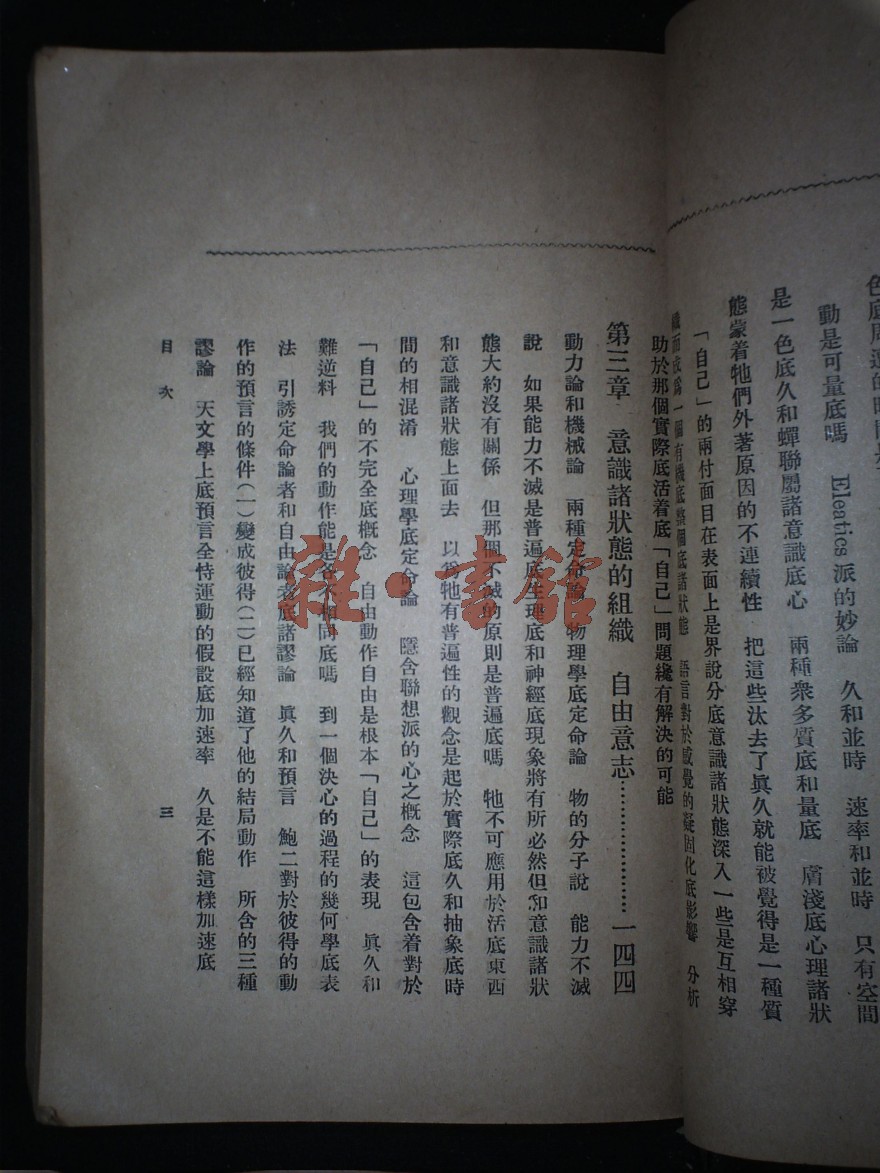 動是可量底嗎　Eleatics 派的妙論　久和並時　速率和並時　只有空間
是一色底久和蟬聯屬諸意識底心　兩種衆多質底和量底　膚淺底心理諸狀
態蒙着牠們外著原因的不連續性　把這些汰去了眞久就能被覺得是一種質
「自己」的兩付面目在表面上是界說分底意識諸狀態深入一些是互相穿
織而成爲一個有機底整個底諸狀態　語言對於感覺的凝固化底影響　分析
助於那個實際底活着底「自己」問題纔有解決的可能
第三章　意識諸狀態的組織　自由意志…………………一四四
動力論和機械論　兩種定命論　物理學底定命論　物的分子說　能力不滅
說　如果能力不滅是普遍底生理底和神經底現象將有所必然但和意識諸狀
態大約沒有關係　但那個不滅的原則是普遍底嗎　牠不可應用於活底東西
和意識諸狀態上面去　以爲牠有普遍性的觀念是起於實際底久和抽象底時
間的相混淆　心理學底定命論　隱含聯想派的心之概念　這包含着對於
「自己」的不完全底概念　自由動作自由是根本「自己」的表現　眞久和
難逆料　我們的動作能是各不相同底嗎　到一個決心的過程的幾何學底表
法　引誘定命論者和自由論者底諸謬論　眞久和預言　鮑二對於彼得的動
作的預言的條件（一）變成彼得（二）已經知道了他的結局動作　所含的三種
謬論　天文學上底預言全恃運動的假設底加速率　久是不能這樣加速底
目次
三
雜·書館